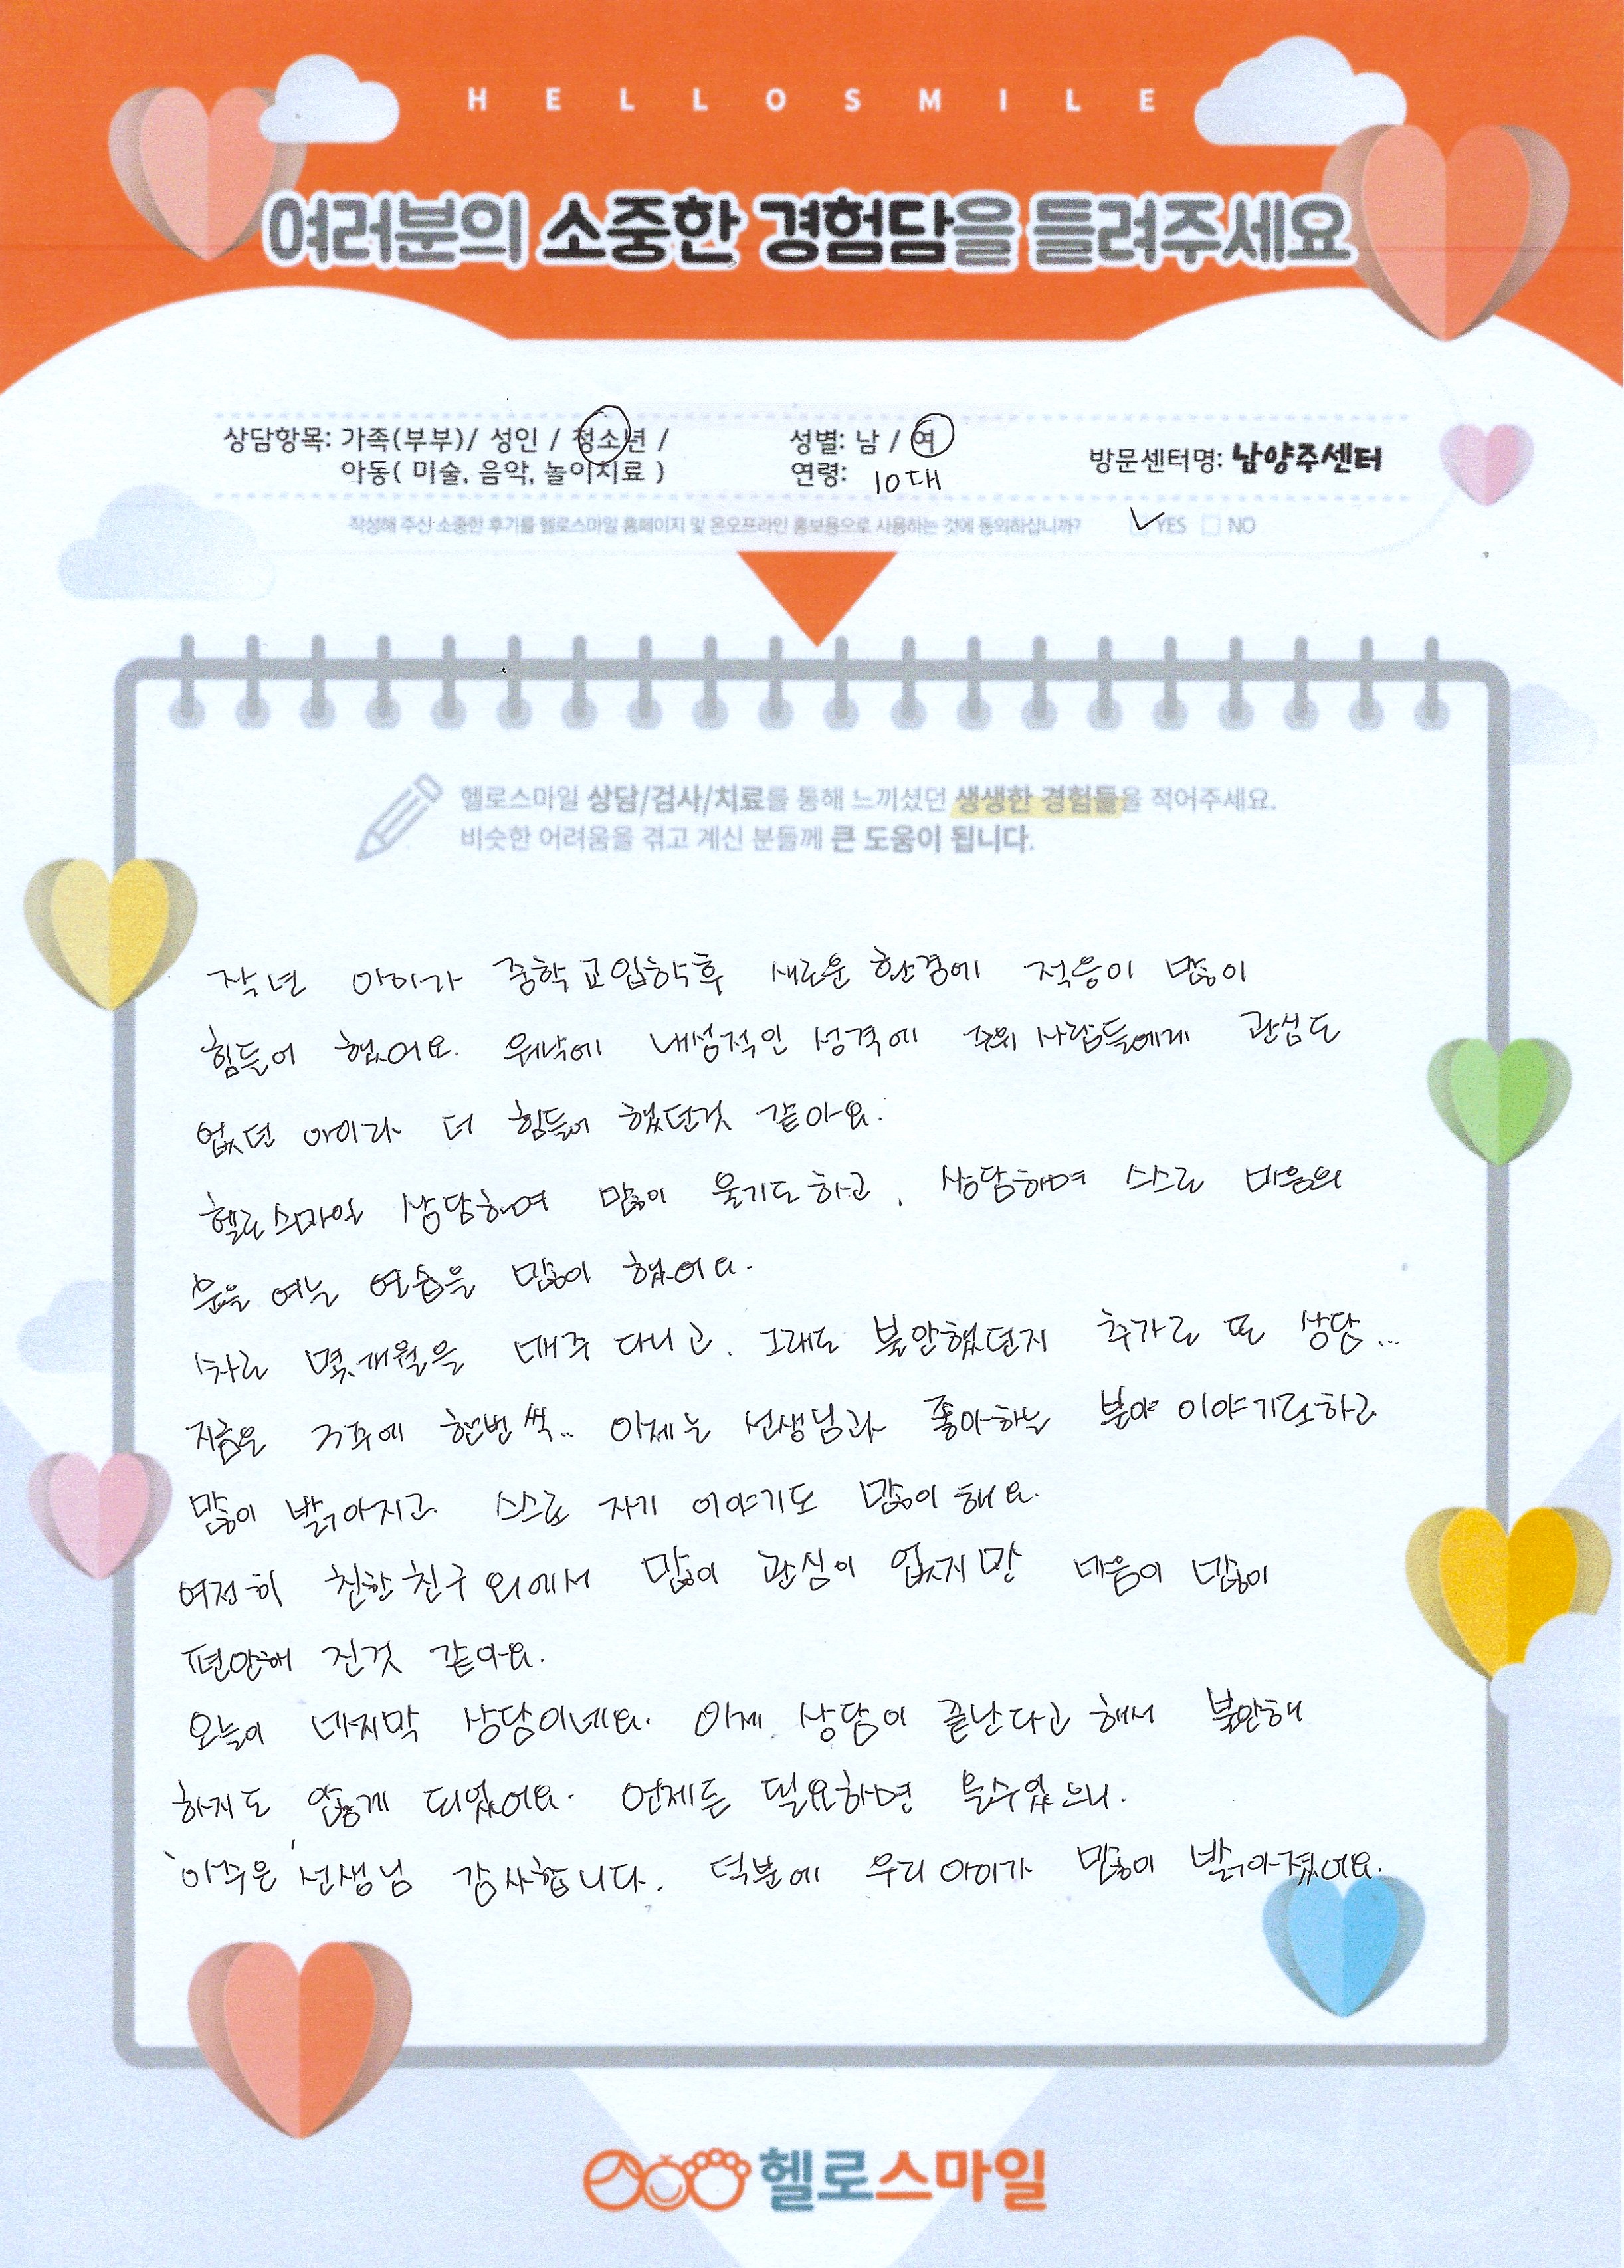 HELLOSMILE
여러분의 소중한 경험담을 들려주세요
상담항목: 가족(부부)/ 성인 / 청소년 /
아동( 미술, 음악, 놀이치료 )
성별: 남 / 여
연령: 10대
방문센터명: 남양주센터
작성해 주신 소중한 후기를 헬로스마일 홈페이지 및 온오프라인 홍보용으로 사용하는 것에 동의하십니까? ✓ YES □ NO
헬로스마일 상담/검사/치료를 통해 느끼셨던 생생한 경험들을 적어주세요.
비슷한 어려움을 겪고 계신 분들께 큰 도움이 됩니다.
작년 아이가 중학교입학후 새로운 환경에 적응이 많이
힘들어 했어요. 워낙에 내성적인 성격에 주위 사람들에게 관심도
없던 아이라 더 힘들어 했던것 같아요.
헬로스마일 상담하며 많이 울기도하고, 상담하며 스스로 마음의
문을 여는 연습을 많이 했어요.
1차로 몇개월을 매주 다니고, 그래도 불안했던지 추가로 또 상담...
지금은 3주에 한번씩.. 이제는 선생님과 좋아하는 분야 이야기도하고
많이 밝아지고 스스로 자기 이야기도 많이 해요.
여전히 친한친구 외에서 많이 관심이 없지만 마음이 많이
편안해 진것 같아요.
오늘이 마지막 상담이네요. 이제 상담이 끝난다고 해서 불안해
하지도 않게 되었어요. 언제든 필요하면 올수있으니.
'이주은' 선생님 감사합니다. 덕분에 우리아이가 많이 밝아졌어요.
헬로스마일